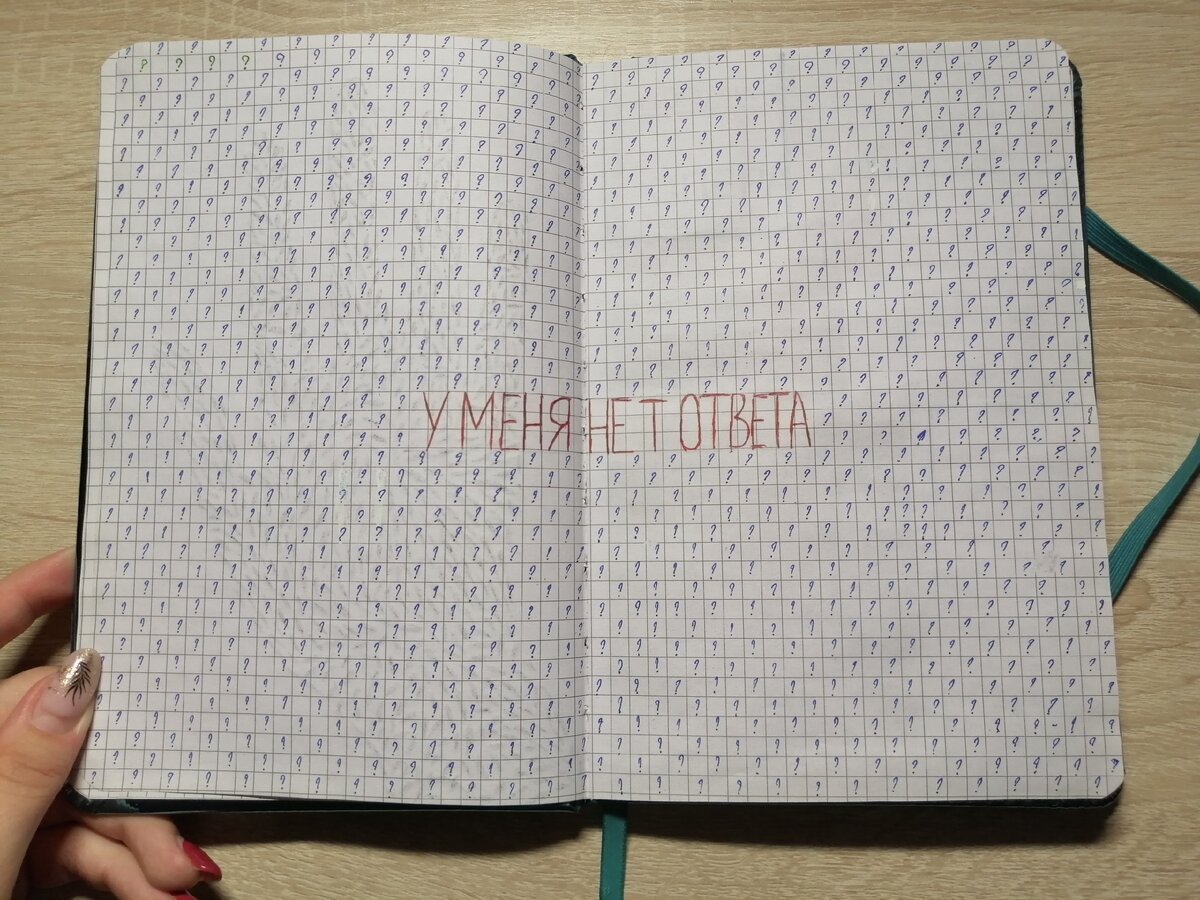 У МЕНЯ НЕТ ОТВЕТА